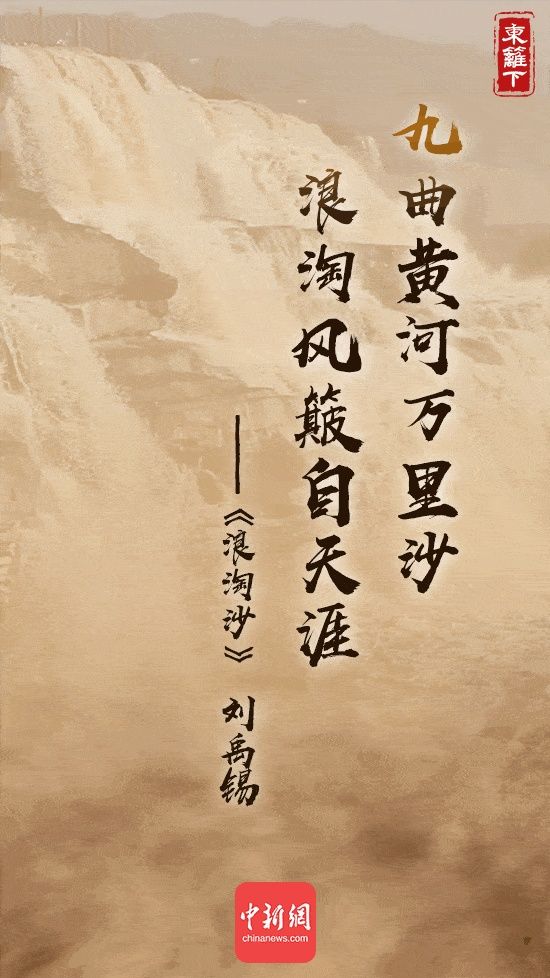 東籬下
九曲黄河万里沙
浪淘风簸自天涯
——《浪淘沙》 刘禹锡
中新網
chinanews.com